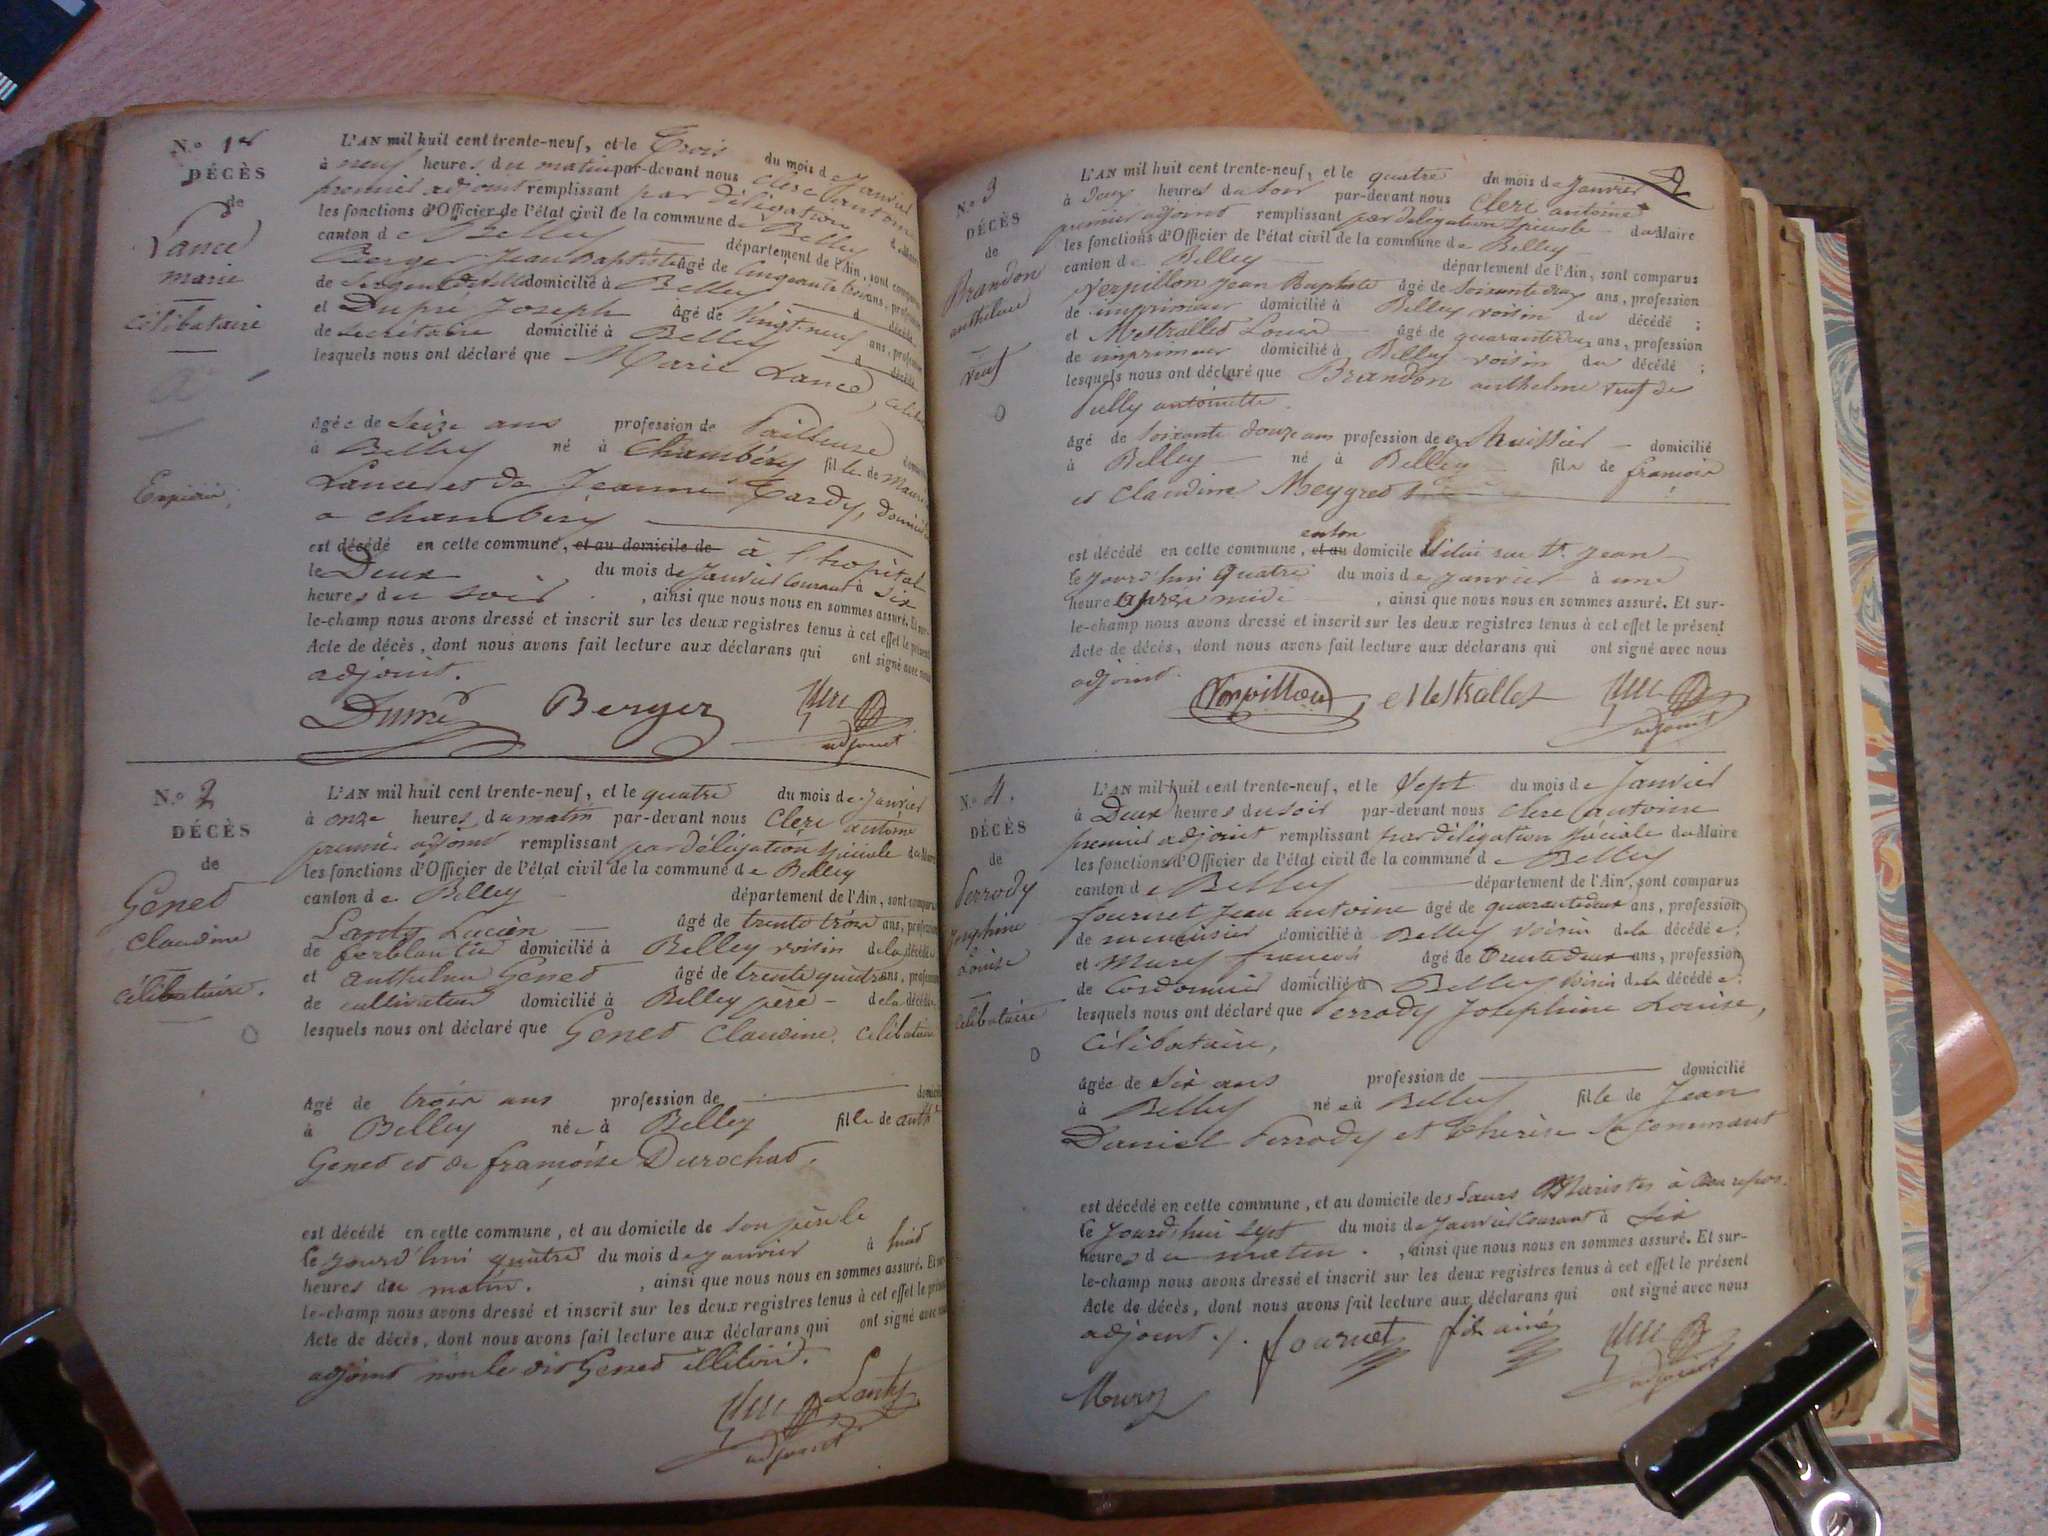 N.º 1er
DÉCÈS
de
Lance
marie
célibataire
Expédié
L'AN mil huit cent trente-neuf, et le Trois du mois de Janvier
à neuf heures du matin par-devant nous Clerc antoine
premier adjoint remplissant par délégation
les fonctions d'Officier de l'état civil de la commune de Belley
canton de Belley département de l'Ain, sont comparus
Berger Jean Baptiste âgé de Cinquante trois ans, profession
de domicilié à Belley d décédé
et Dupré Joseph âgé de Vingt-neuf ans, profession
de secrétaire domicilié à Belley d décédé
lesquels nous ont déclaré que Marie Lance,
âgée de Seize ans profession de Tailleuse
à Belley né à Chambéry fille de
Lance et de Jeanne Tardy,
a chambery
est décédé en cette commune, et au domicile de à l'hopital
le Deux du mois de Janvier Courant à Six
heures du soir , ainsi que nous nous en sommes assuré. Et sur-
le-champ nous avons dressé et inscrit sur les deux registres tenus à cet effet le présent
Acte de décès, dont nous avons fait lecture aux déclarans qui ont signé avec nous
adjoint.
Dupré Berger Clerc
adjoint
N.º 2
DÉCÈS
de
Genet
claudine
célibataire.
L'AN mil huit cent trente-neuf, et le quatre du mois de Janvier
à onze heures du matin par-devant nous Clerc antoine
premier adjoint remplissant par délégation spéciale du Maire
les fonctions d'Officier de l'état civil de la commune de Belley
canton de Belley département de l'Ain, sont comparus
Lanty Lucien âgé de trente trois ans, profession
de ferblantier domicilié à Belley voisin de la décédée
et anthelme Genet âgé de trente quatre ans, profession
de cultivateur domicilié à Belley père de la décédée
lesquels nous ont déclaré que Genet Claudine. célibataire
âgé de trois ans profession de domicilié
à Belley née à Belley fille de anth
Genet et de françoise Durochat.
est décédé en cette commune, et au domicile de son père le
le jourd'hui quatre du mois de janvier à huit
heures du matin. , ainsi que nous nous en sommes assuré. Et sur-
le-champ nous avons dressé et inscrit sur les deux registres tenus à cet effet le présent
Acte de décès, dont nous avons fait lecture aux déclarans qui ont signé avec nous
adjoint non le dit Genet illitéré.
Clerc Lanty
adjoint
N.º 3
DÉCÈS
de
Brandon
anthelme
veuf
2
L'AN mil huit cent trente-neuf, et le quatre du mois de Janvier
à Deux heures du soir par-devant nous Clerc antoine
premier adjoint remplissant par délégation spéciale du Maire
les fonctions d'Officier de l'état civil de la commune de Belley
canton de Belley département de l'Ain, sont comparus
Verpillon jean Baptiste âgé de Soixante deux ans, profession
de imprimeur domicilié à Belley voisin du décédé ;
et Mestrallet Louis âgé de quarante deux ans, profession
de imprimeur domicilié à Belley voisin du décédé ;
lesquels nous ont déclaré que Brandon anthelme veuf de
antoinette.
âgé de soixante douze ans profession de ex huissier domicilié
à Belley né à Belley fils de françois
et Claudine Meygret
est décédé en cette commune, et au domicile situé sur St. Jean
enson
le jourd'hui quatre du mois de janvier à une
heure après midi , ainsi que nous nous en sommes assuré. Et sur-
le-champ nous avons dressé et inscrit sur les deux registres tenus à cet effet le présent
Acte de décès, dont nous avons fait lecture aux déclarans qui ont signé avec nous
adjoint.
Verpillon Mestrallet Clerc
adjoint
N.º 4.
DÉCÈS
de
Perrody
josephine
Louise
célibataire
L'AN mil huit cent trente-neuf, et le Sept du mois de Janvier
à Deux heures du soir par-devant nous Clerc antoine
premier adjoint remplissant par délégation spéciale du Maire
les fonctions d'Officier de l'état civil de la commune de Belley
canton de Belley département de l'Ain, sont comparus
fournet Jean antoine âgé de quarante deux ans, profession
de menuisier domicilié à Belley voisin de la décédée;
et Mury françois âgé de trente deux ans, profession
de Cordonnier domicilié à Belley voisin de la décédée;
lesquels nous ont déclaré que Perrody Josephine Louise,
Célibataire,
âgée de six ans profession de domicilié
à Belley née à Belley fille de Jean
Daniel Perrody et thérèse
est décédé en cette commune, et au domicile des Sœurs Maristes à Bon repos.
le jourd'hui sept du mois de Janvier Courant à Six
heures du matin. , ainsi que nous nous en sommes assuré. Et sur-
le-champ nous avons dressé et inscrit sur les deux registres tenus à cet effet le présent
Acte de décès, dont nous avons fait lecture aux déclarans qui ont signé avec nous
adjoint ./. fournet fils ainé Clerc
adjoint
Mury